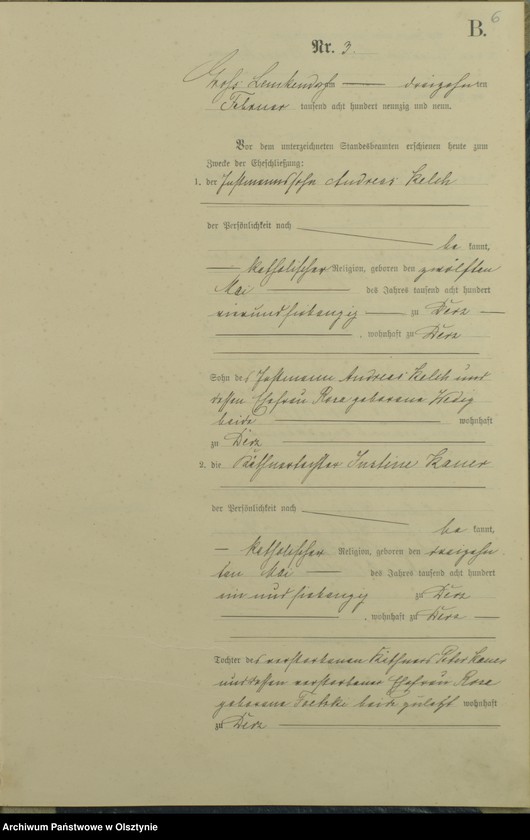 B. 6
Nr. 3.
Groß Lemkendorf am dreizehnten
Februar tausend acht hundert neunzig und neun.
Vor dem unterzeichneten Standesbeamten erschienen heute zum
Zwecke der Eheschließung:
1. der Instmannssohn Andreas Kelch
der Persönlichkeit nach
bekannt,
katholischer Religion, geboren den zwölften
Mai des Jahres tausend acht hundert
vierundsiebenzig zu Derz
, wohnhaft zu Derz
Sohn des Instmann Andreas Kelch und
dessen Ehefrau Rosa geborene
beide wohnhaft
zu Derz
2. die Käthnertochter Justine
der Persönlichkeit nach
bekannt,
katholischer Religion, geboren den dreizehn
ten Mai des Jahres tausend acht hundert
ein und siebenzig zu Derz
, wohnhaft zu Derz
Tochter des verstorbenen Käthners Peter
und dessen verstorbener Ehefrau Rosa
geborene beide zuletzt wohnhaft
zu Derz
Archiwum Państwowe w Olsztynie